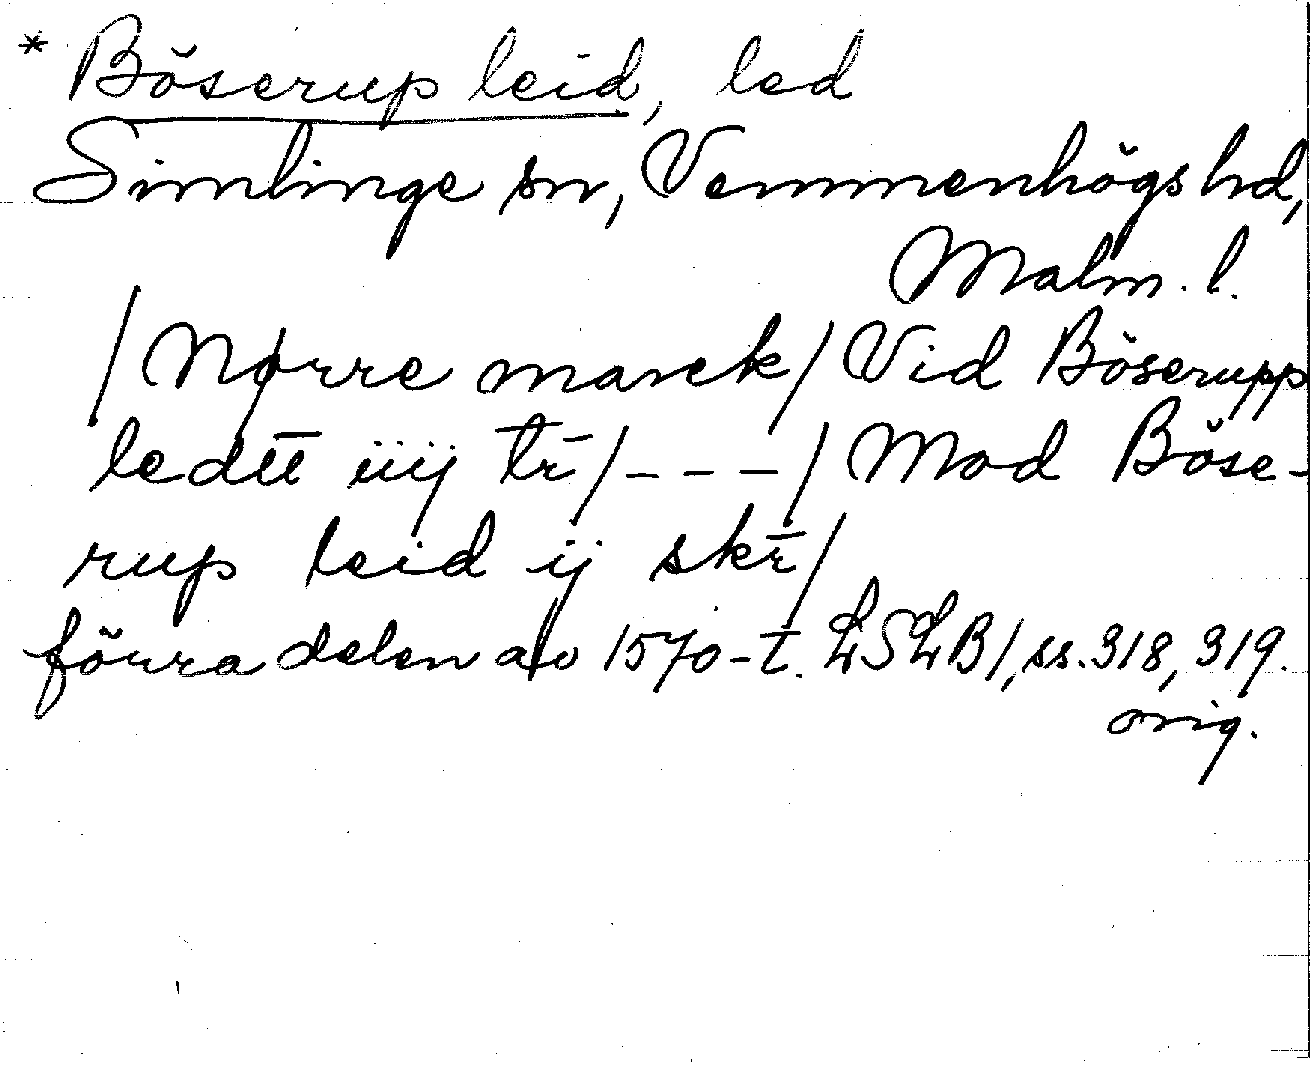 * Böserup leid, led
Simlinge sn, Vemmenhögs hd,
Malm. l.
/ Nørre marck / Vid Böserupp
ledīī iiij tr̄ / - - - / Mod Böse-
rup leid ij skr̄ /
förra delen av 1570-t. LSLB1, ss. 318, 319.
orig.